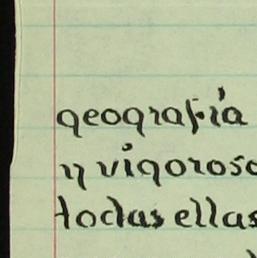 geografía
y vigoroso
todas ellas